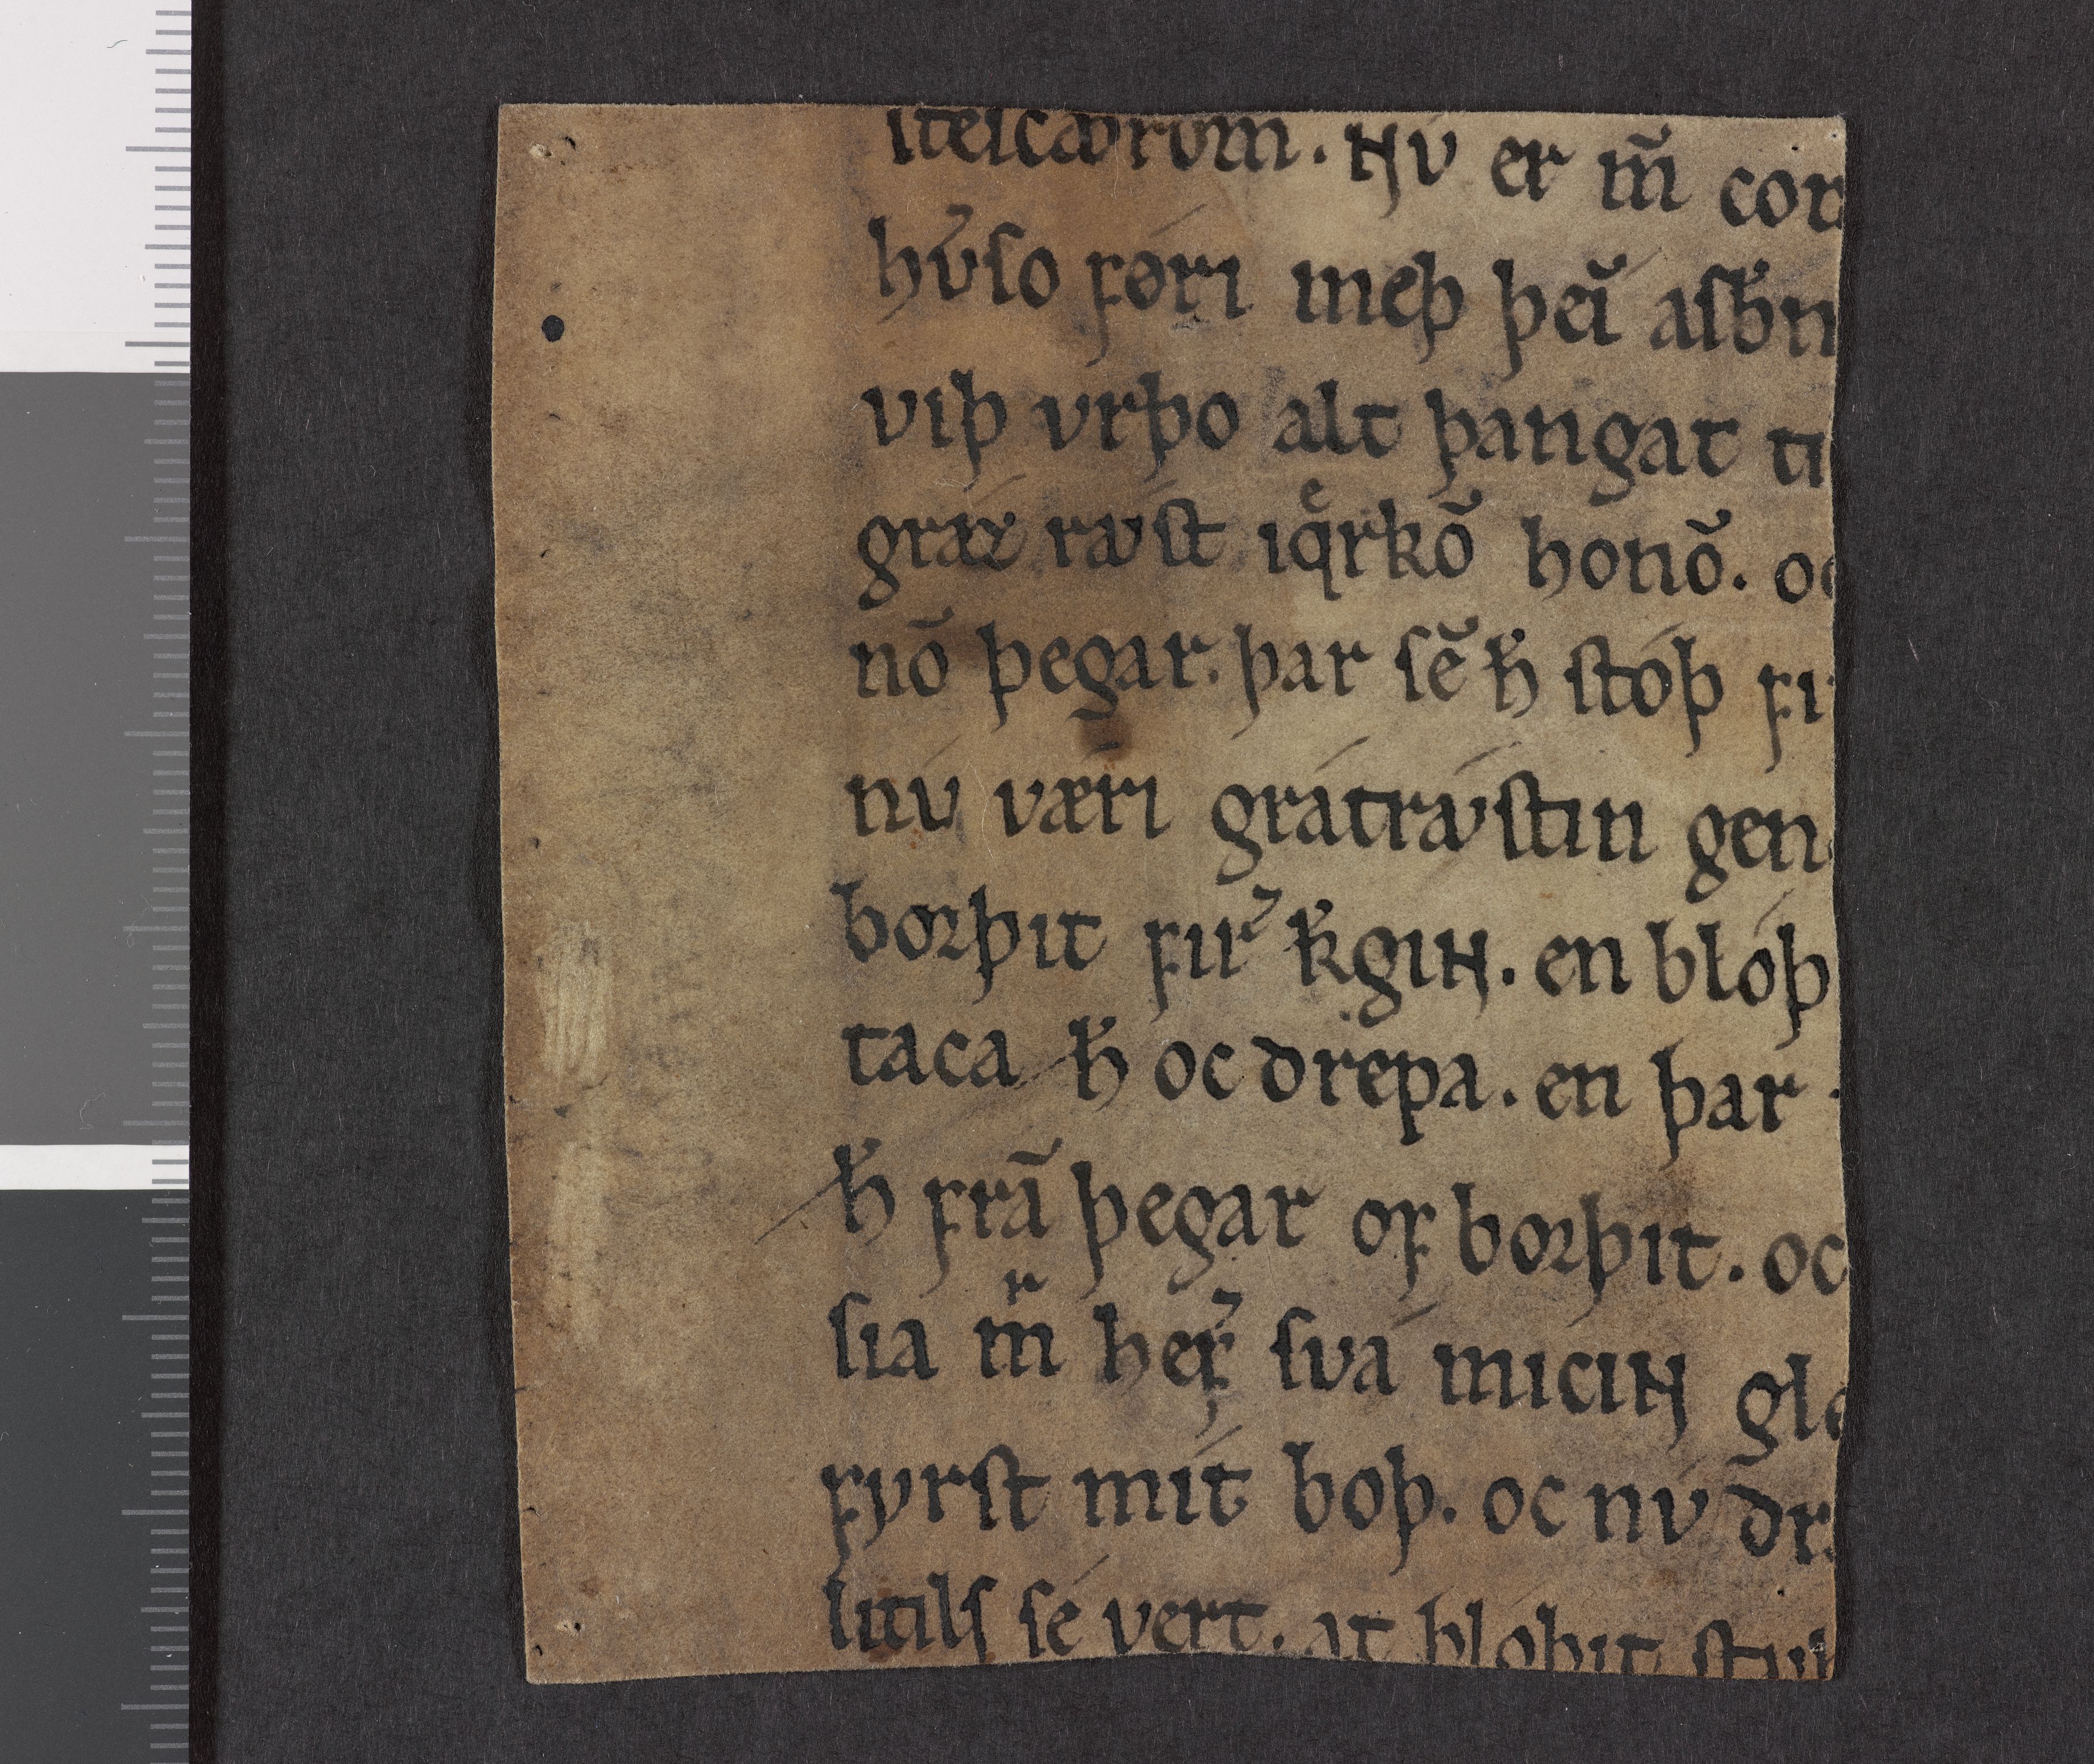 steicaꝍrom. Nv er m̄ cor
hv̄so føri meþ þeı̄ asb̄n
viþ vrþo alt þangat ti
gráꝛ ꜹ́st ıqͤrkō honō. oc
nō þegar. þar sē ħ stóþ fi
nv́ væri grátrꜹ́stin gen
borþit fır̃ k̄gıɴ. en blóþ
taca ħ oc drepa. en þar
ħ frā þegar of borþit. oc
sia m̄ her̃ svá miciɴ gl
fyrst mít boþ. oc nv́ dr
litils sé vert. at bloþit stvk